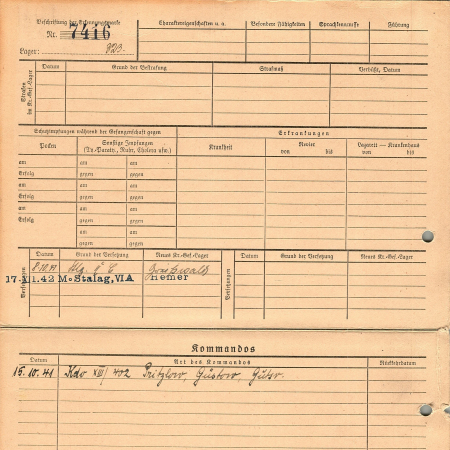 Beschriftung der Erkennungsmarke
Nr. 7416
Lager: 323
Charaktereigenschaften u. a.
Besondere Fähigkeiten
Sprachkenntnisse
Führung
Strafen im Kr.-Gef.-Lager
Datum
Grund der Bestrafung
Strafmaß
Verbüßt, Datum
Schutzimpfungen während der Gefangenschaft gegen
Erkrankungen
Pocken
Sonstige Impfungen
(Ty.-Paraty., Ruhr, Cholera usw.)
Krankheit
Revier
von bis
Lazarett — Krankenhaus
von bis
am am
Erfolg gegen
am am
Erfolg gegen
am am
Erfolg gegen
am
gegen
am
gegen
Versetzungen
Datum
Grund der Versetzung
Neues Kr.-Gef.-Lager
Versetzungen
Datum
Grund der Versetzung
Neues Kr.-Gef.-Lager
8.10.41 Greifswald
17.11.42 M.-Stalag, VI A Hemer
Kommandos
Datum
Art des Kommandos
Rückkehrdatum
15.10.41 Kdo XIII/402 Pritzlow, Gustow,